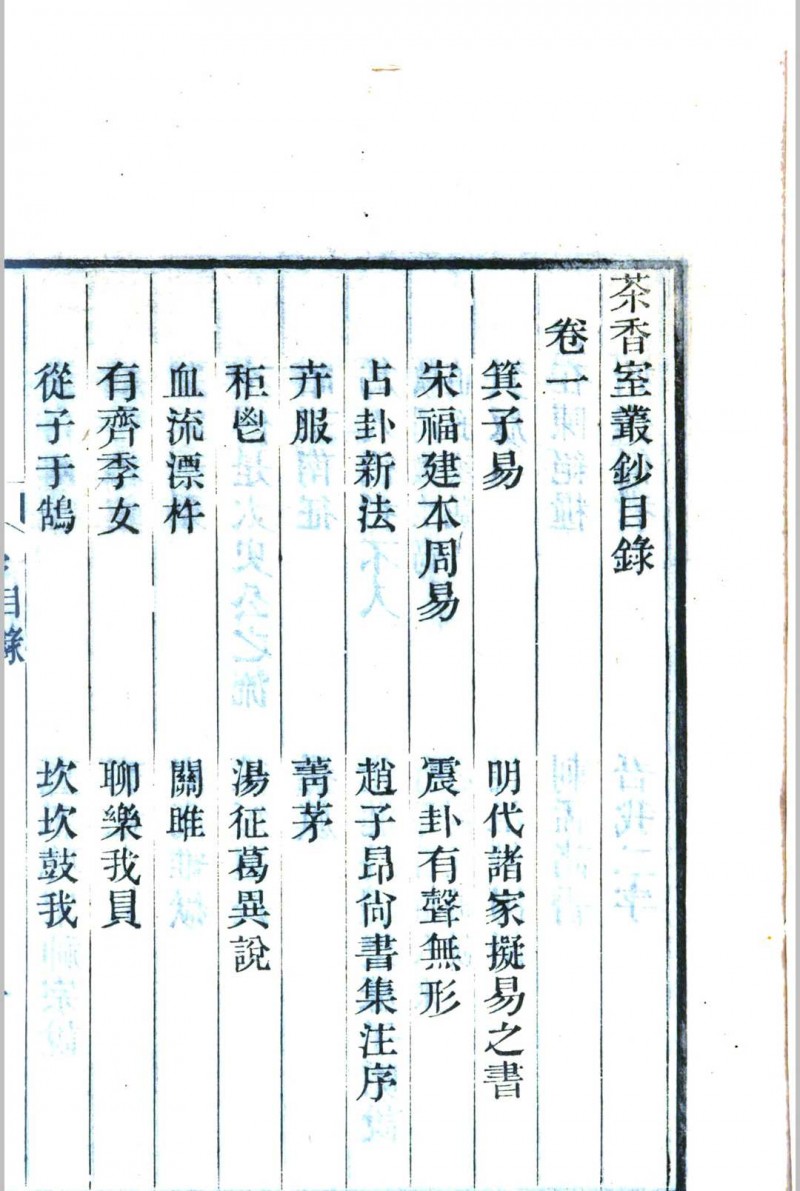 茶香室叢鈔目錄
卷一
箕子易
明代諸家擬易之書
宋福建本周易
震卦有聲無形
占卦新法
趙子昂尙書集注序
卉服
菁茅
秬鬯
湯征葛異說
血流漂杵
關雎
有齊季女
聊樂我員
從子于鵠
坎坎鼓我
目錄